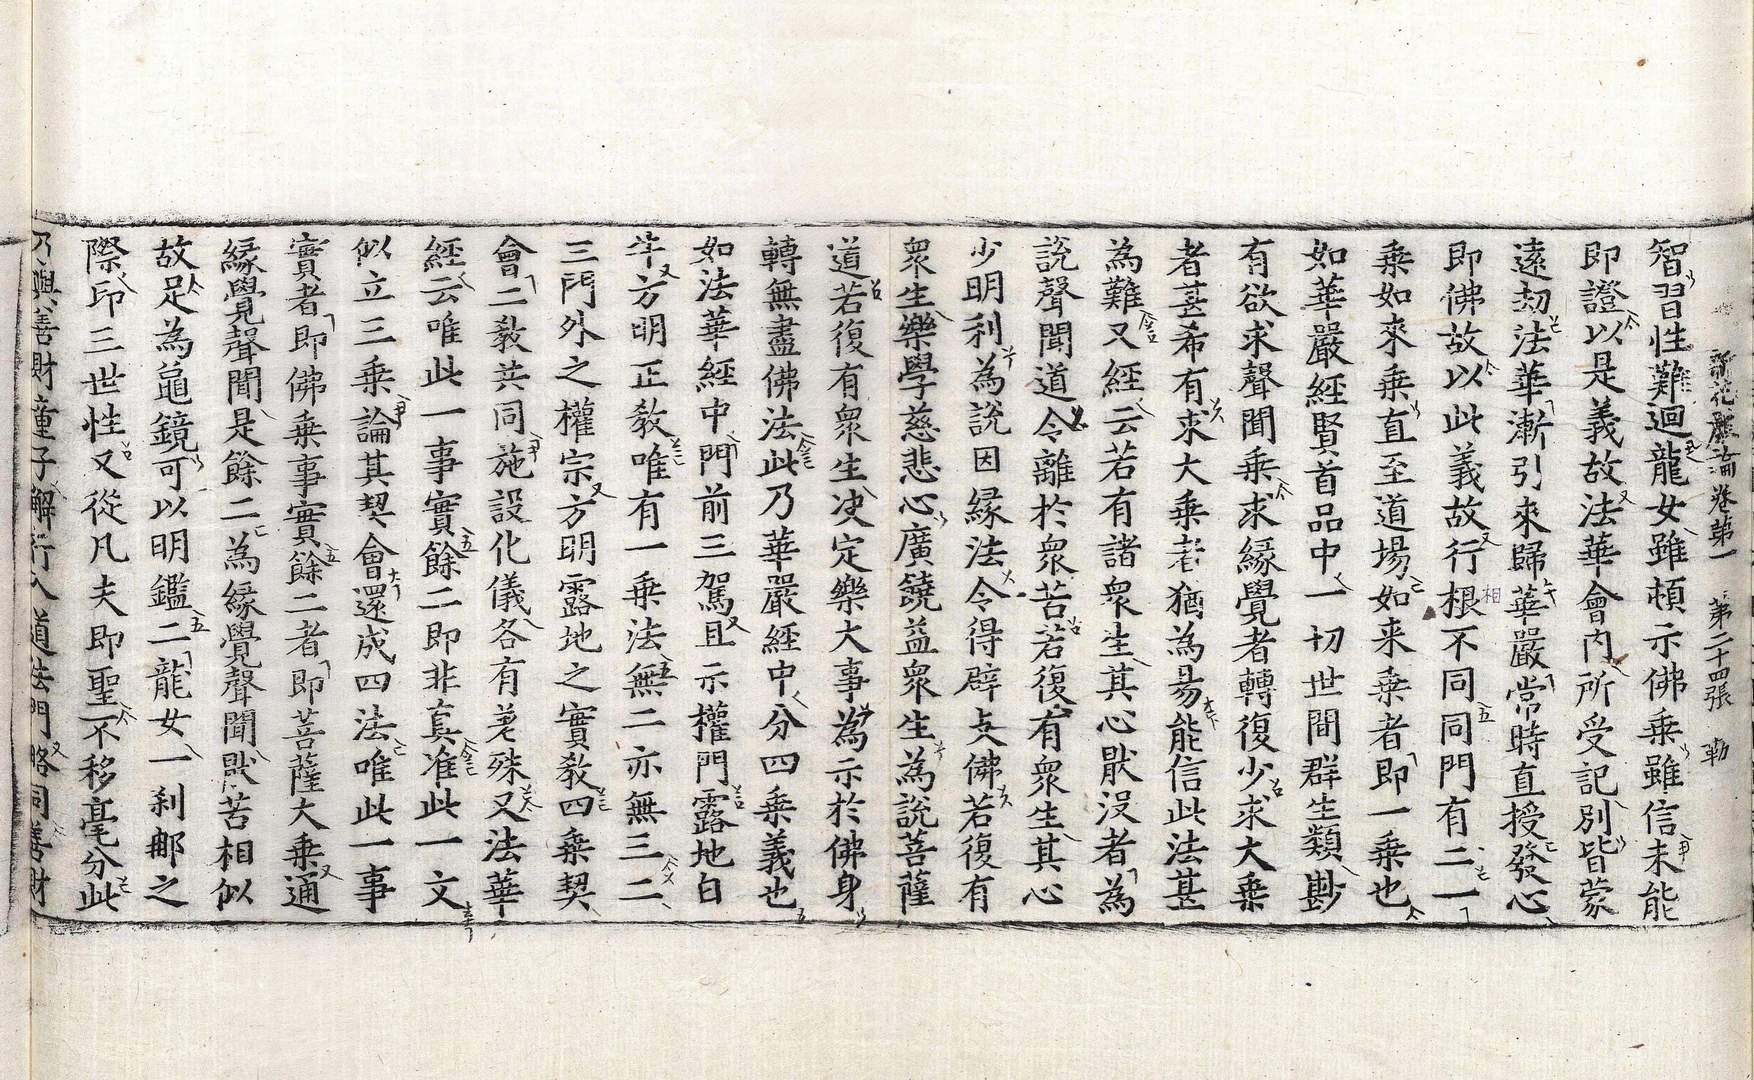 新花嚴論卷第一　第二十四張　勒
智習性難迴龍女雖頓示佛乗雖信未能
即證以是義故法華會内所受記別皆蒙
遠劫法華漸引來歸華嚴常時直授發心
即佛故以此義故行根不同同門有二一
相
乗如來乗直至道場如来乗者即一乗也
如華嚴經賢首品中一切世間群生類尠
有欲求聲聞乗求緣覺者轉復少求大乗
者甚希有求大乗者猶為易能信此法甚
為難又經云若有諸衆生其心厭没者為
說聲聞道令離於衆苦若復有衆生其心
少明利為說因縁法令得辟支佛若復有
衆生樂學慈悲心廣饒益衆生為說菩薩
道若復有衆生决定樂大事為示於佛身
轉無盡佛法此乃華嚴經中分四乗義也
如法華經中門前三駕且示權門露地白
牛方明正教唯有一乗法無二亦無三二
三門外之權宗方明露地之實教四乗契
會二教共同施設化儀各有差殊又法華
經云唯此一事實餘二即非真准此一文
似立三乗論其契會還成四法唯此一事
實者即佛乗事實餘二者即菩薩大乗通
緣覺聲聞是餘二為緣覺聲聞厭苦相似
故足為龜鏡可以明鑑二龍女一刹那之
際印三世性又從凡夫即聖不移毫分此
乃與善財童子解行入道法門略同善財